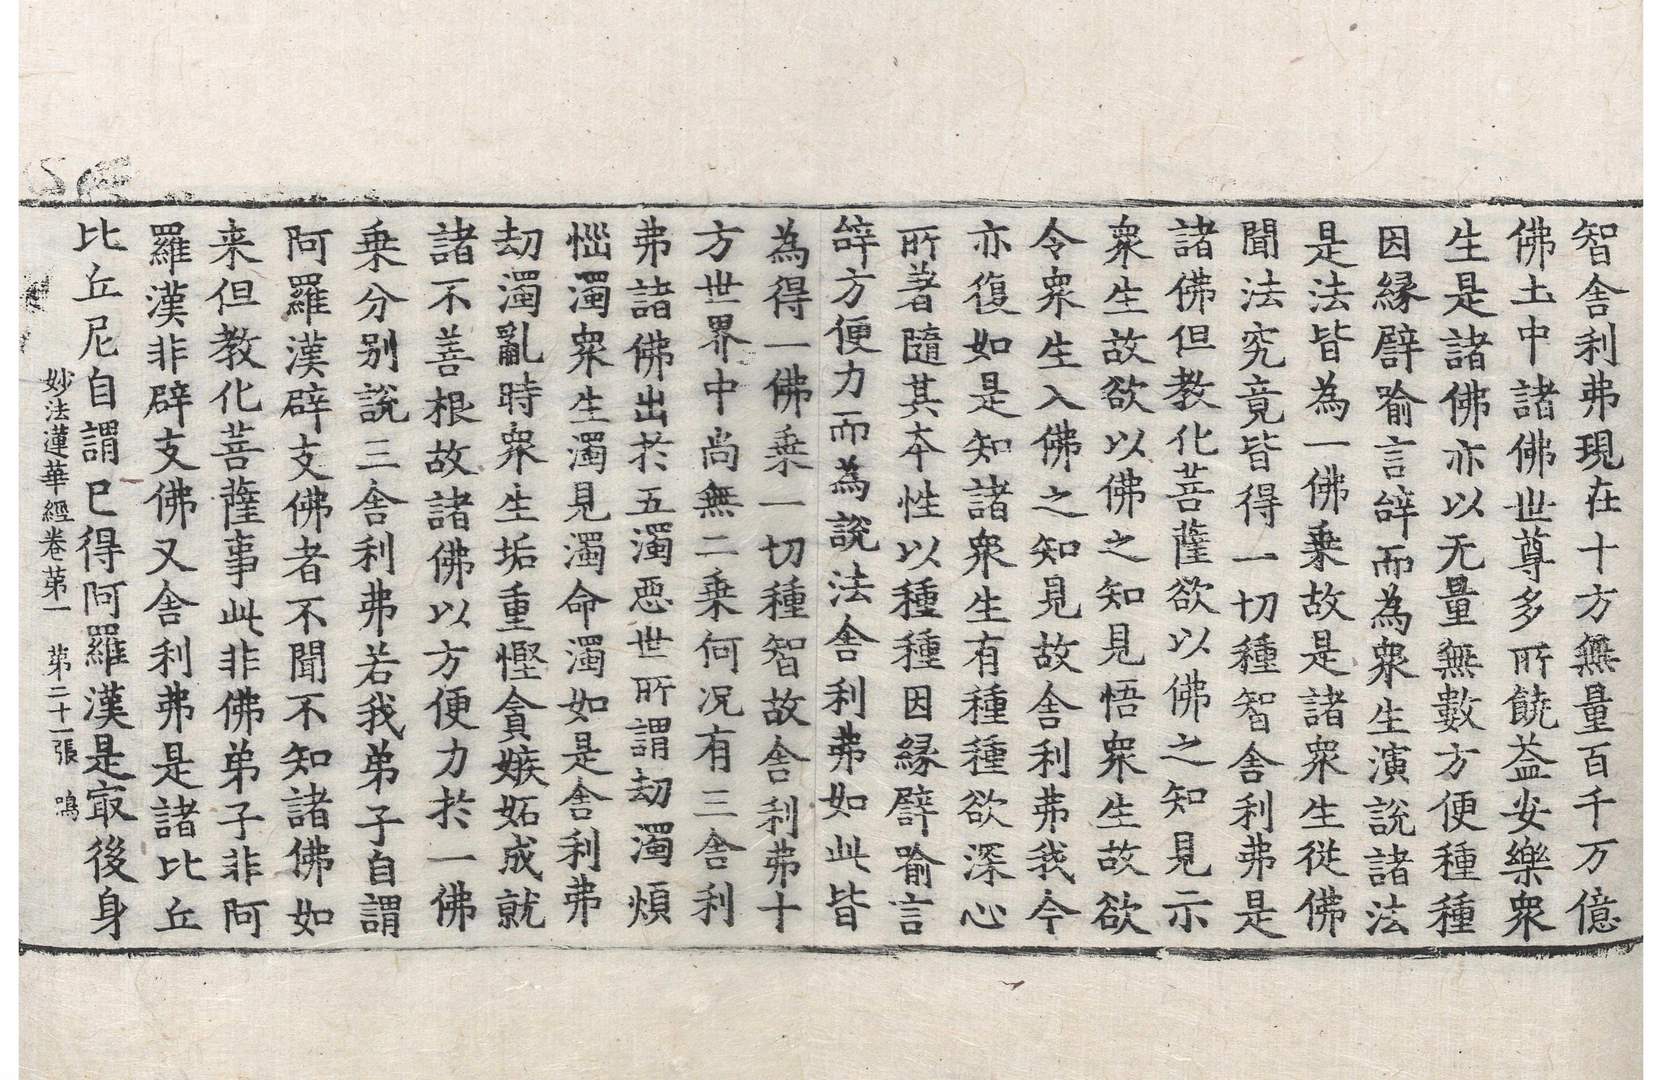 智舍利弗現在十方無量百千万億
佛土中諸佛世尊多所饒益安樂衆
生是諸佛亦以无量無數方便種種
因縁譬喻言辝而為衆生演說諸法
是法皆為一佛乗故是諸衆生從佛
聞法究竟皆得一切種智舍利弗是
諸佛但教化菩薩欲以佛之知見示
衆生故欲以佛之知見悟衆生故欲
令衆生入佛之知見故舍利弗我今
亦復如是知諸衆生有種種欲深心
所著隨其本性以種種因縁譬喻言
辝方便力而為說法舍利弗如此皆
為得一佛乗一切種智故舍利弗十
方世界中尚無二乗何况有三舍利
弗諸佛出於五濁惡世所謂劫濁煩
惱濁衆生濁見濁命濁如是舍利弗
劫濁亂時衆生垢重慳貪嫉妬成就
諸不善根故諸佛以方便力於一佛
乗分别說三舍利弗若我弟子自謂
阿羅漢辟支佛者不聞不知諸佛如
来但教化菩薩事此非佛弟子非阿
羅漢非辟支佛又舍利弗是諸比丘
比丘尼自謂已得阿羅漢是㝡後身
妙法蓮華經卷第一　第二十一張　鳴